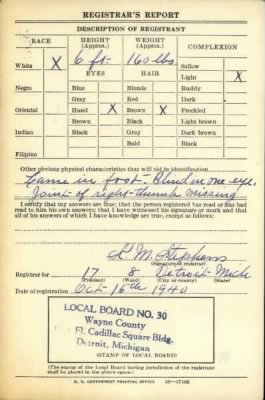 REGISTRAR'S REPORT
DESCRIPTION OF REGISTRANT
RACE HEIGHT (Approx.) WEIGHT (Approx.) COMPLEXION
6 ft. 160 lbs
White X Sallow
EYES HAIR Light X
Negro Blue Blonde Ruddy
Gray Red Dark
Oriental Hazel X Brown X Freckled
Brown Black Light brown
Indian Black Gray Dark brown
Bald Black
Filipino
Other obvious physical characteristics that will aid in identification
Lame in foot - Blind in one eye.
Joint of right-thumb missing
I certify that my answers are true; that the person registered has read or has had
read to him his own answers; that I have witnessed his signature or mark and that
all of his answers of which I have knowledge are true, except as follows:
M Stephens
(Signature of registrar)
Registrar for 17 8 Detroit Mich
(Precinct) (Ward) (City or county) (State)
Date of registration Oct-16th 1940
LOCAL BOARD NO. 30
Wayne County
Fl. Cadillac Square Bldg.
Detroit, Michigan
(STAMP OF LOCAL BOARD)
(The stamp of the Local Board having jurisdiction of the registrant
shall be placed in the above space.)
U. S. GOVERNMENT PRINTING OFFICE 16-17105